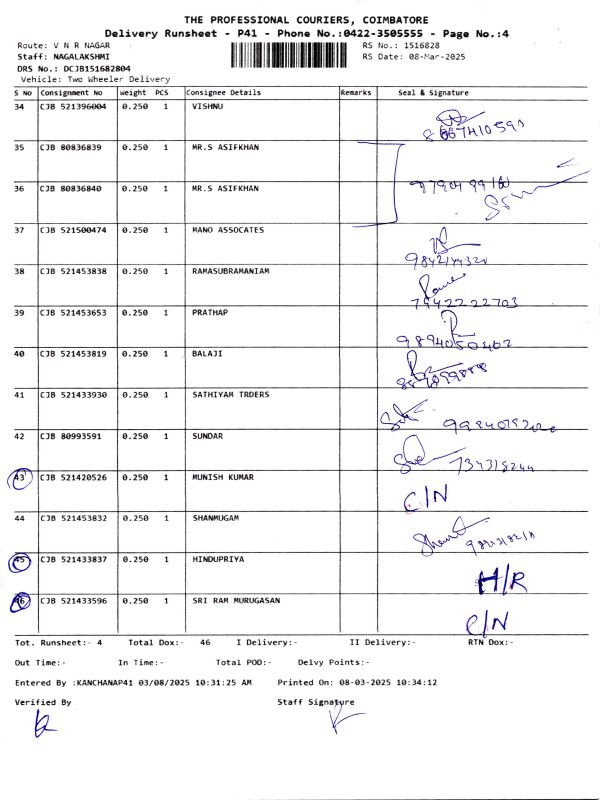 THE PROFESSIONAL COURIERS, COIMBATORE
Delivery Runsheet - P41 - Phone No.:0422-3505555 - Page No.:4
Route: V N R NAGAR RS No.: 1516828
Staff: NAGALAKSHMI RS Date: 08-Mar-2025
DRS No.: DCJB151682804
Vehicle: Two Wheeler Delivery
S No Consignment No Weight PCS Consignee Details Remarks Seal & Signature
34 CJB 521396004 0.250 1 VISHNU
35 CJB 80836839 0.250 1 MR.S ASIFKHAN
36 CJB 80836840 0.250 1 MR.S ASIFKHAN
37 CJB 521500474 0.250 1 MANO ASSOCATES
38 CJB 521453838 0.250 1 RAMASUBRAMANIAM
7942222703
39 CJB 521453653 0.250 1 PRATHAP
9894050402
40 CJB 521453819 0.250 1 BALAJI
41 CJB 521433930 0.250 1 SATHIYAM TRDERS
42 CJB 80993591 0.250 1 SUNDAR
43 CJB 521420526 0.250 1 MUNISH KUMAR C/N
44 CJB 521453832 0.250 1 SHANMUGAM
45 CJB 521433837 0.250 1 HINDUPRIYA H/R
46 CJB 521433596 0.250 1 SRI RAM MURUGASAN C/N
Tot. Runsheet:- 4 Total Dox:- 46 I Delivery:- II Delivery:- RTN Dox:-
Out Time:- In Time:- Total POD:- Delvy Points:-
Entered By :KANCHANAP41 03/08/2025 10:31:25 AM Printed On: 08-03-2025 10:34:12
Verified By Staff Signature